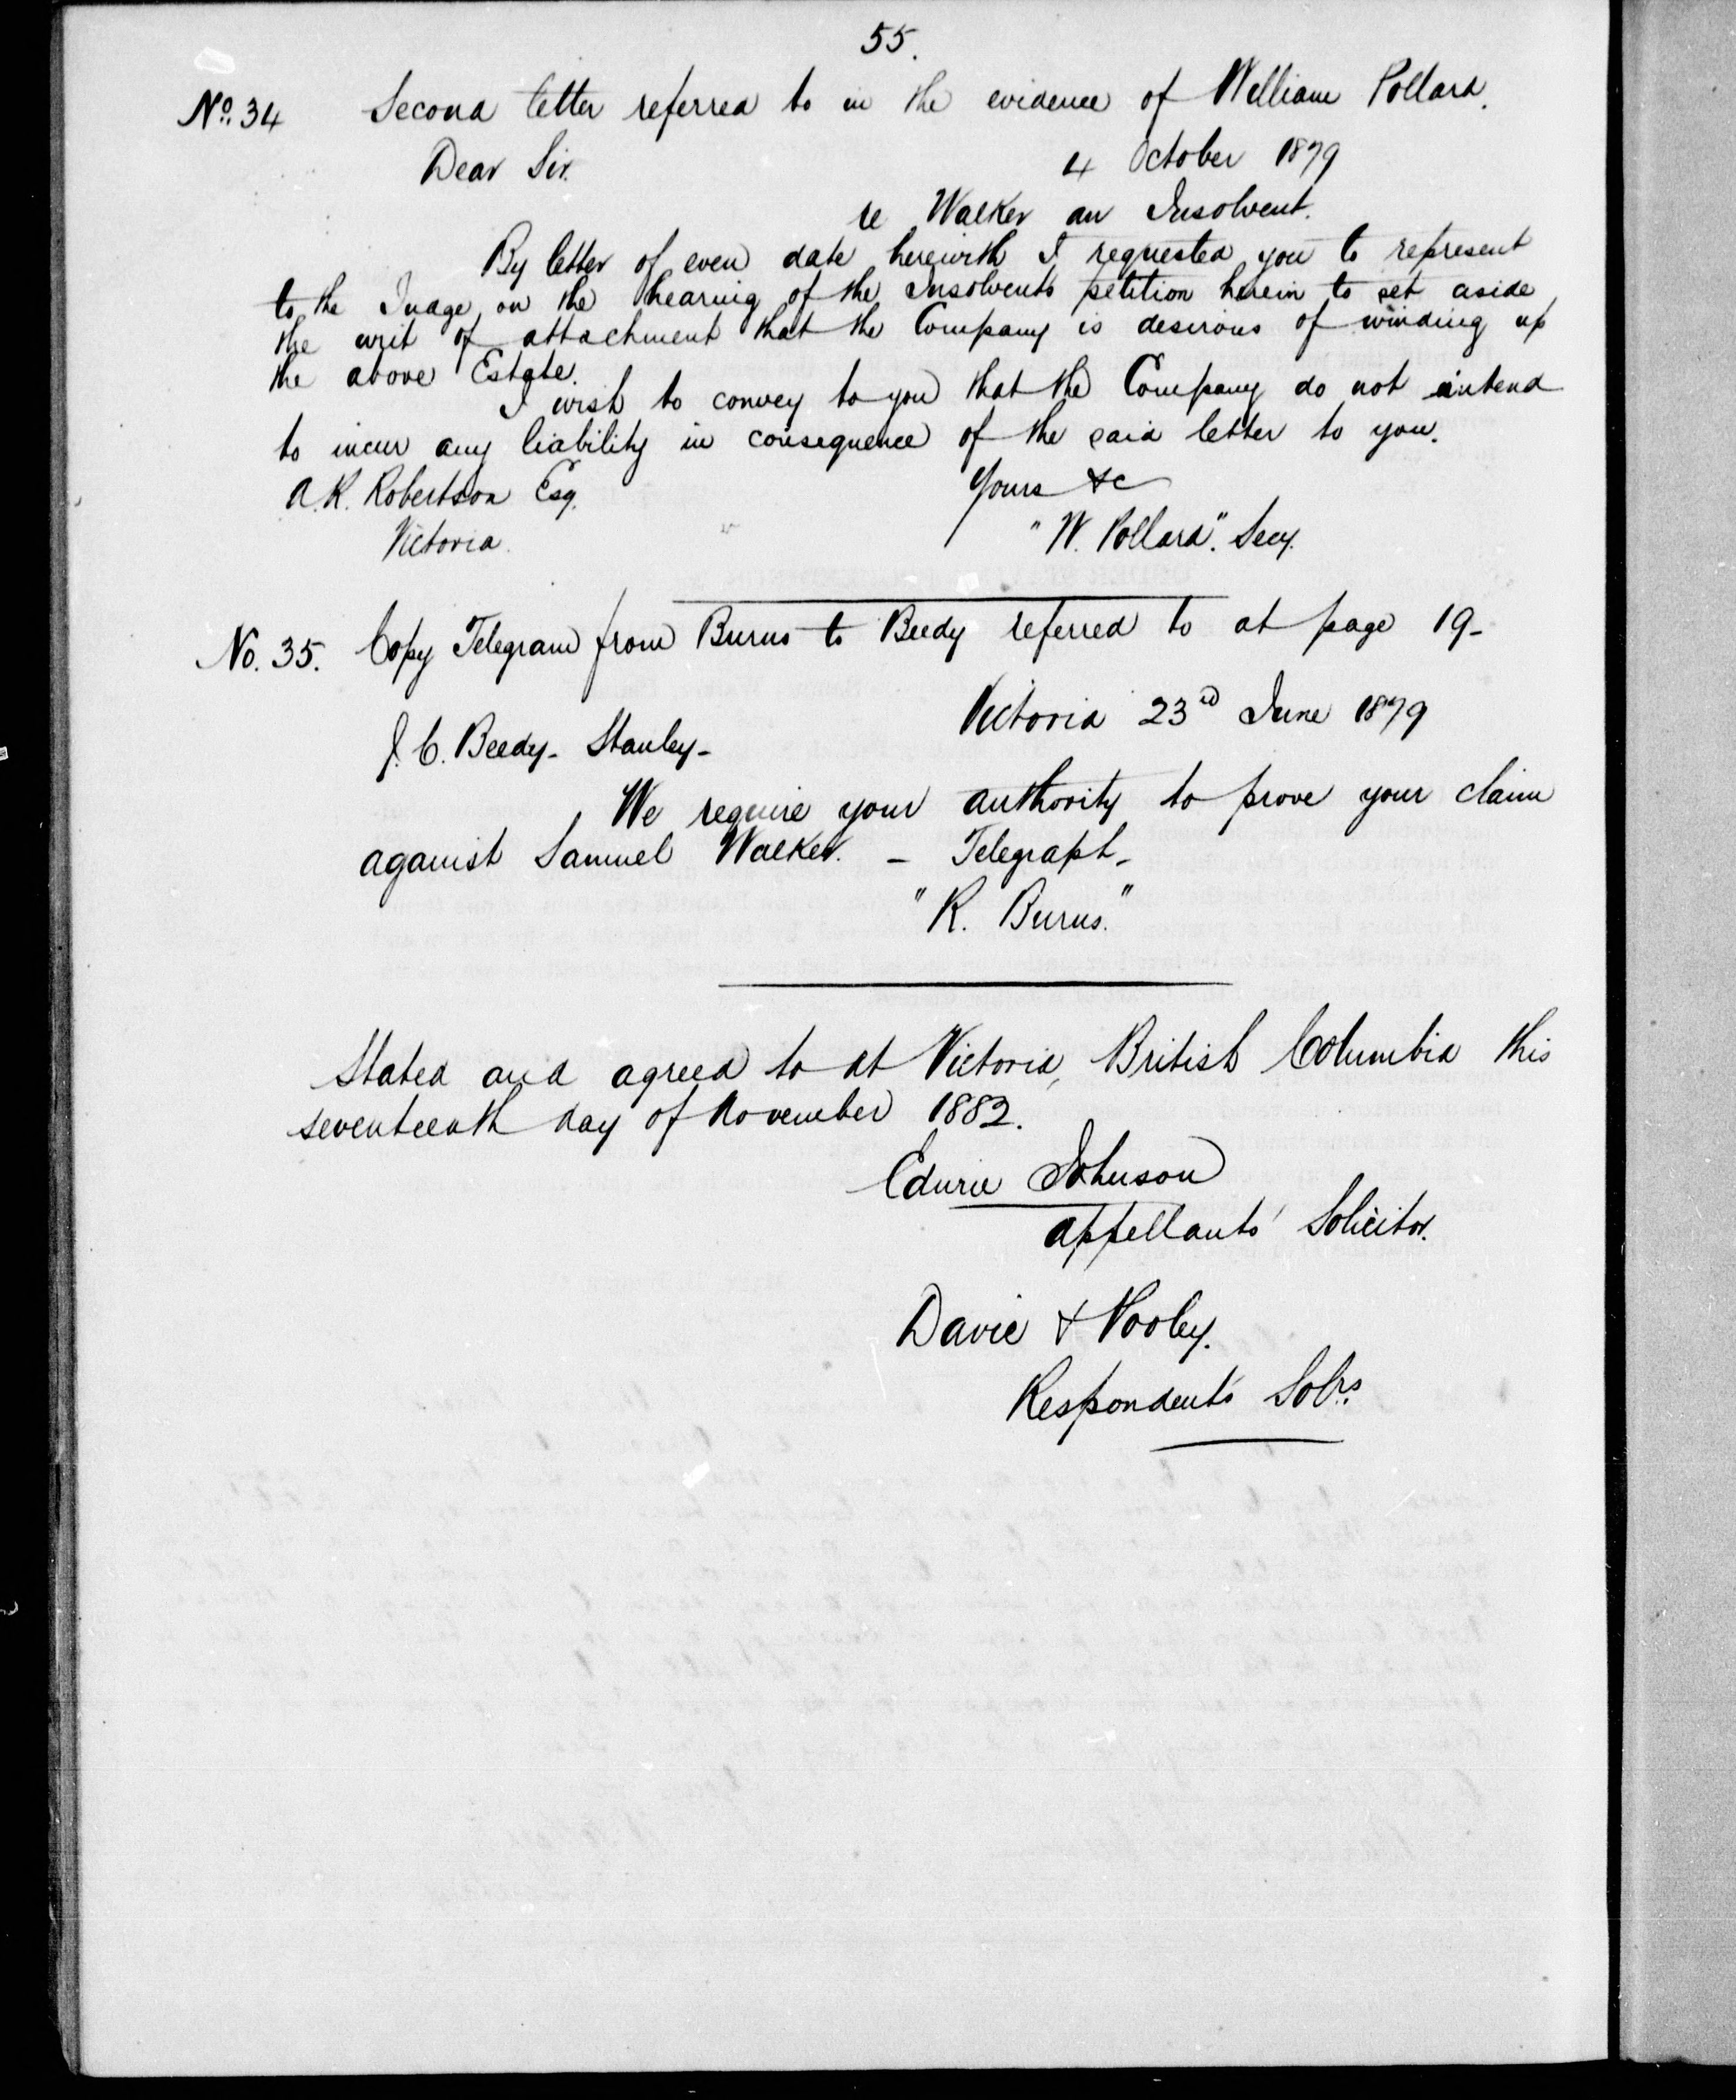 55.
No. 34 Second letter referred to in the evidence of William Pollard.
Dear Sir. 4 October 1879
re Walker an Insolvent.
By letter of even date herewith I requested you to represent
to the Judge on the hearing of the Insolvents petition herein to set aside
the writ of attachment that the Company is desirous of winding up
the above Estate.
I wish to convey to you that the Company do not intend
to incur any liability in consequence of the said letter to you.
A. R. Robertson Esq. Yours &c
Victoria. "W. Pollard". Secy.
No. 35. Copy Telegram from Burns to Beedy referred to at page 19-
Victoria 23rd June 1879
J. C. Beedy- Stanley-
We require your authority to prove your claim
against Samuel Walker. - Telegraph-
"R. Burns."
Stated and agreed to at Victoria, British Columbia this
seventeenth day of November 1882.
Edwin Johnson
Appellants' Solicitor.
Davie & Pooley.
Respondents Solrs.